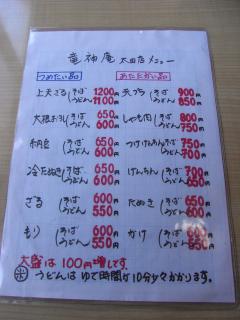 竜神庵 太田店メニュー
つめたい品
あたたかい品
上天ざる(そば 1200円
うどん 1100円
天プラ(そば 900円
うどん 850円
大根おろし(そば 650円
うどん 600円
しゃも肉(そば 800円
うどん 750円
納豆(そば 650円
うどん 600円
つけけんちん(そば 750円
うどん 700円
冷たぬき(そば 650円
うどん 600円
けんちん(そば 700円
うどん 650円
ざる(そば 600円
うどん 550円
たぬき(そば 650円
うどん 600円
もり(そば 600円
うどん 550円
かけ(そば 600円
うどん 550円
大盛は100円増しです。
※うどんはゆで時間が10分少々かかります。